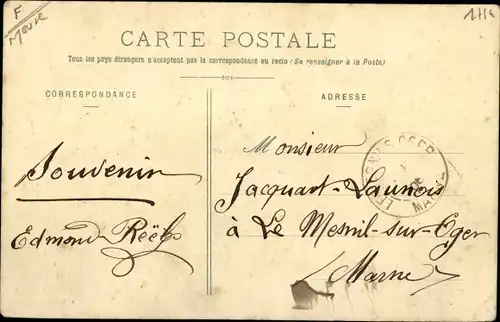 F
Meuse
CARTE POSTALE
Tous les pays étrangers n'acceptent pas la correspondance au recto (Se renseigner à la Poste)
CORRESPONDANCE
ADRESSE
Souvenir
Edmond
Monsieur
Jacquart-Launois
à Le Mesnil-sur-Oger
(Marne)
MARNE